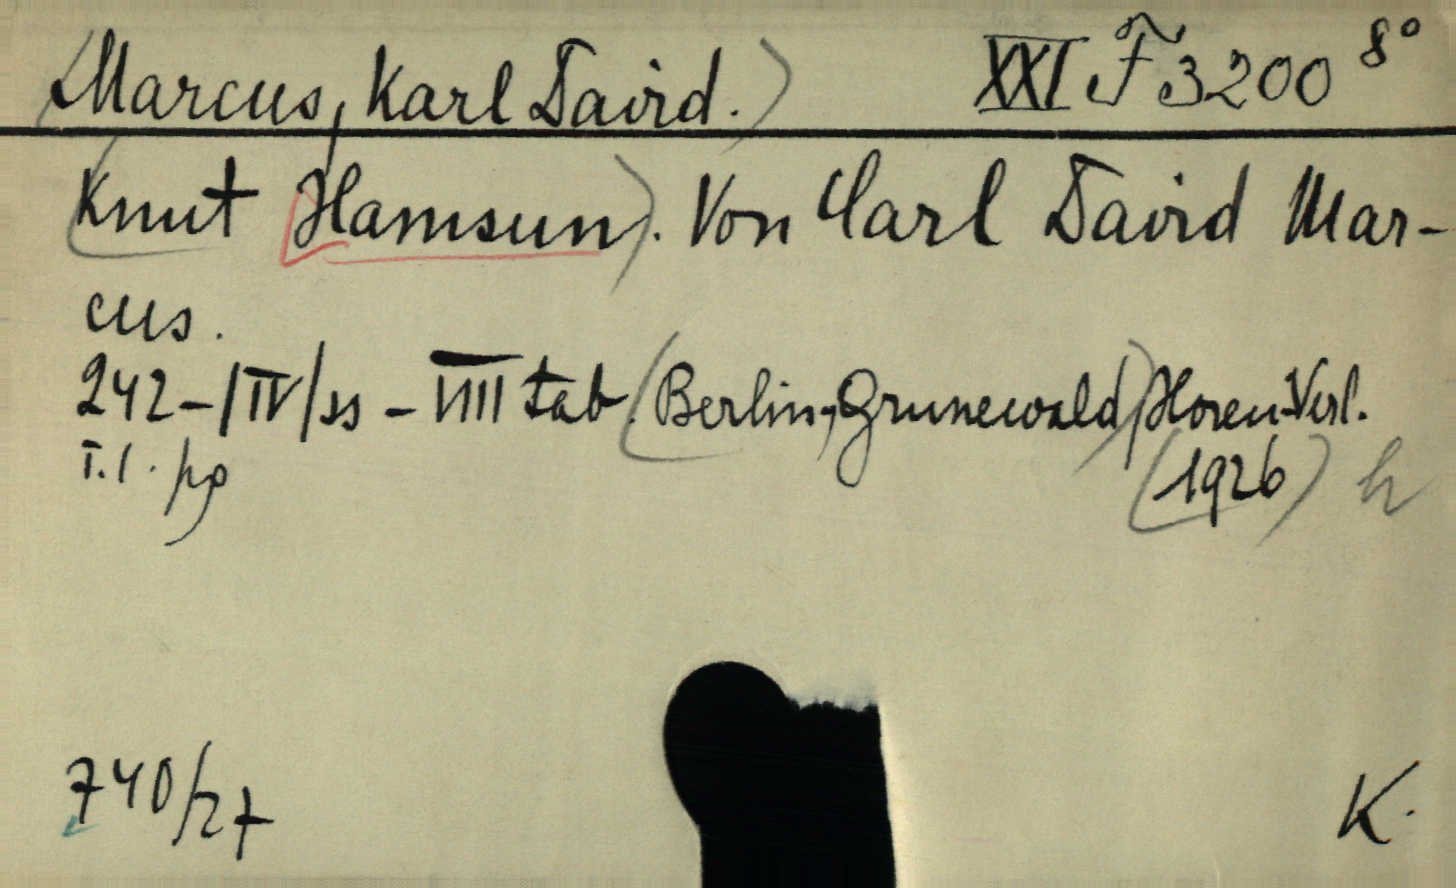 (Marcus, Karl David.) XXI F 3200 8°
(Knut Hamsun). Von Carl David Mar-
cus.
242-/IV/ss - VIIII tab. (Berlin-Grunewald,) Horen-Verl.
T.l. pg (1926) h
740/27 K.